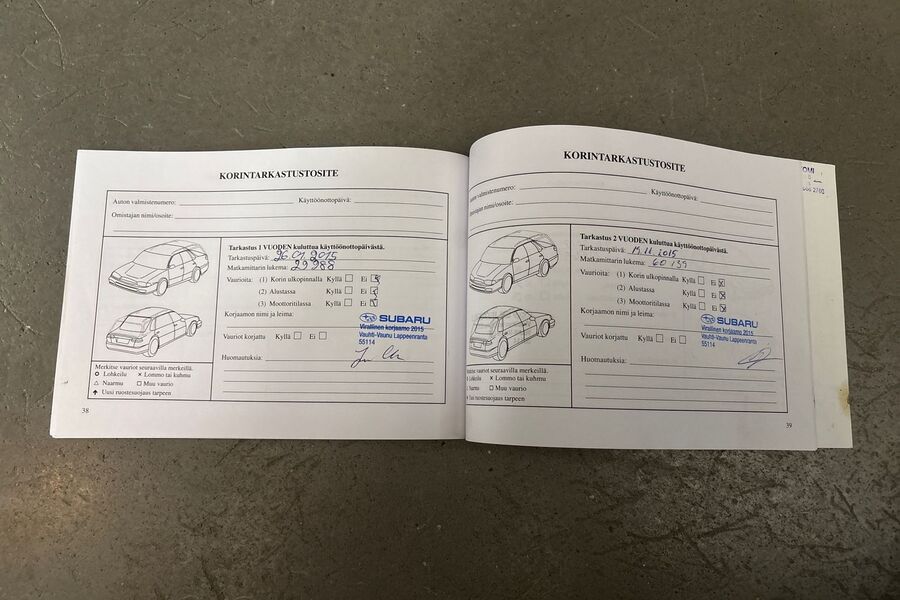 KORINTARKASTUSTOSITE
Auton valmistenumero: Käyttöönottopäivä:
Omistajan nimi/osoite:
Tarkastus 1 VUODEN kuluttua käyttöönottopäivästä.
Tarkastuspäivä: 26.01.2015
Matkamittarin lukema: 29288
Vaurioita: (1) Korin ulkopinnalla Kyllä Ei
(2) Alustassa Kyllä Ei
(3) Moottoritilassa Kyllä Ei
Korjaamon nimi ja leima:
SUBARU
Virallinen korjaamo 2015
Vauhti-Vaunu Lappeenranta
55114
Vauriot korjattu Kyllä Ei
Huomautuksia:
Merkitse vauriot seuraavilla merkeillä.
O Lohkeilu × Lommo tai kuhmu
△ Naarmu □ Muu vaurio
↑ Uusi ruostesuojaus tarpeen
38
KORINTARKASTUSTOSITE
Auton valmistenumero: Käyttöönottopäivä:
Omistajan nimi/osoite:
Tarkastus 2 VUODEN kuluttua käyttöönottopäivästä.
Tarkastuspäivä: 11.2015
Matkamittarin lukema: 60139
Vaurioita: (1) Korin ulkopinnalla Kyllä Ei
(2) Alustassa Kyllä Ei
(3) Moottoritilassa Kyllä Ei
Korjaamon nimi ja leima:
SUBARU
Virallinen korjaamo 2015
Vauhti-Vaunu Lappeenranta
55114
Vauriot korjattu Kyllä Ei
Huomautuksia:
Merkitse vauriot seuraavilla merkeillä.
Lohkeilu × Lommo tai kuhmu
Naarmu □ Muu vaurio
Uusi ruostesuojaus tarpeen
39